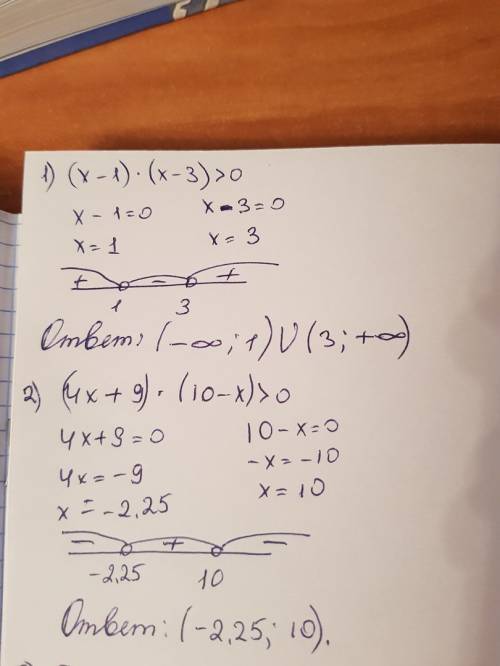 1) (x-1)·(x-3)>0
x-1=0 x-3=0
x=1 x=3
+ - +
1 3
Ответ: (-∞; 1) U (3; +∞)
2) (4x+9)·(10-x)>0
4x+9=0 10-x=0
4x=-9 -x=-10
x=-2,25 x=10
- + -
-2,25 10
Ответ: (-2,25; 10).